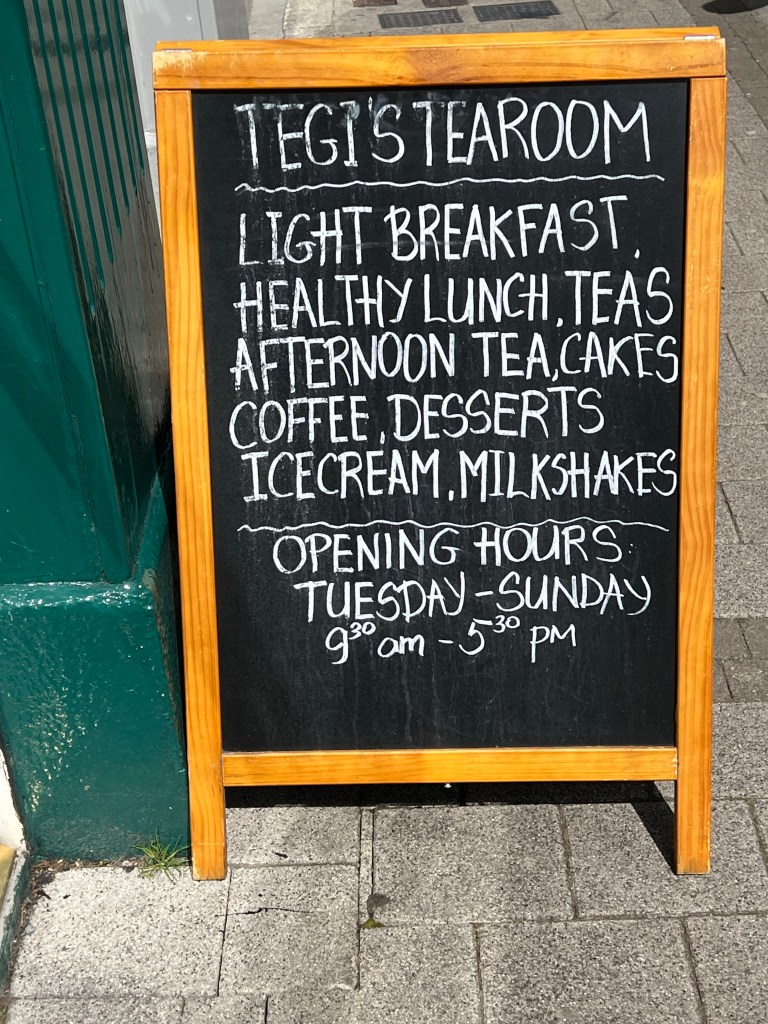 TEGI'S TEAROOM
LIGHT BREAKFAST,
HEALTHY LUNCH, TEAS
AFTERNOON TEA, CAKES
COFFEE, DESSERTS
ICECREAM, MILKSHAKES
OPENING HOURS:
TUESDAY - SUNDAY
9³⁰ am - 5³⁰ PM